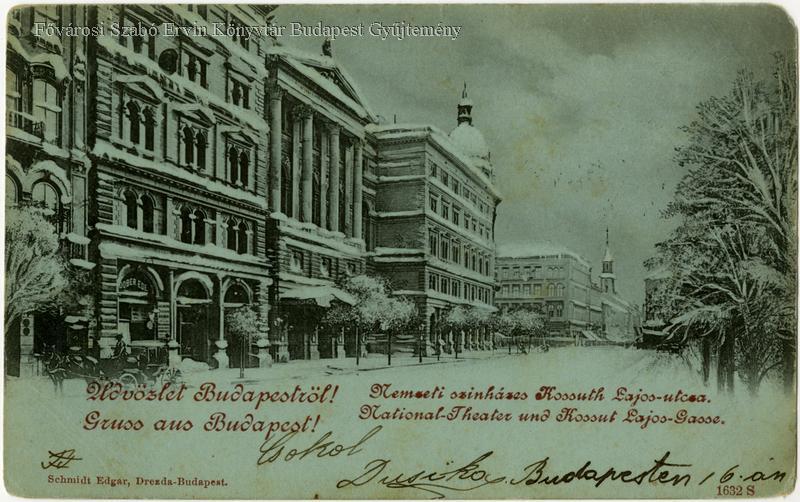 Fővárosi Szabó Ervin Könyvtár Budapest Gyűjtemény
Üdvözlet Budapestről!
Nemzeti szinházes Kossuth Lajos-utcza.
Gruss aus Budapest!
National-Theater und Kossut Lajos-Gasse.
Csokol
Dusika Budapesten 16.án
Schmidt Edgar, Drezda-Budapest.
1632 S